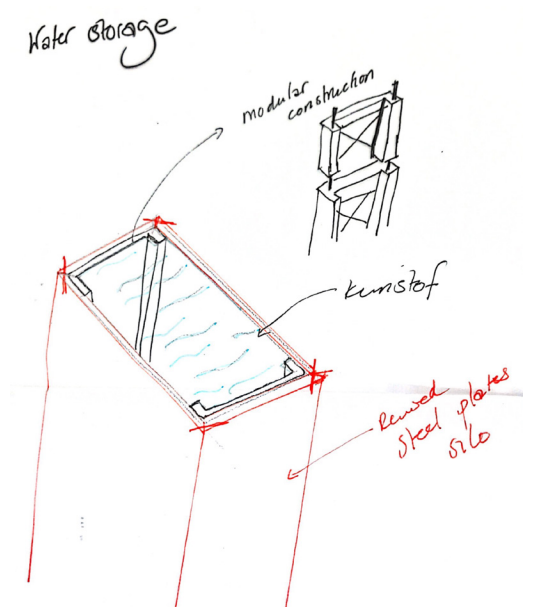 Water storage
modular
construction
kunstof
Reused
steel plates
silo